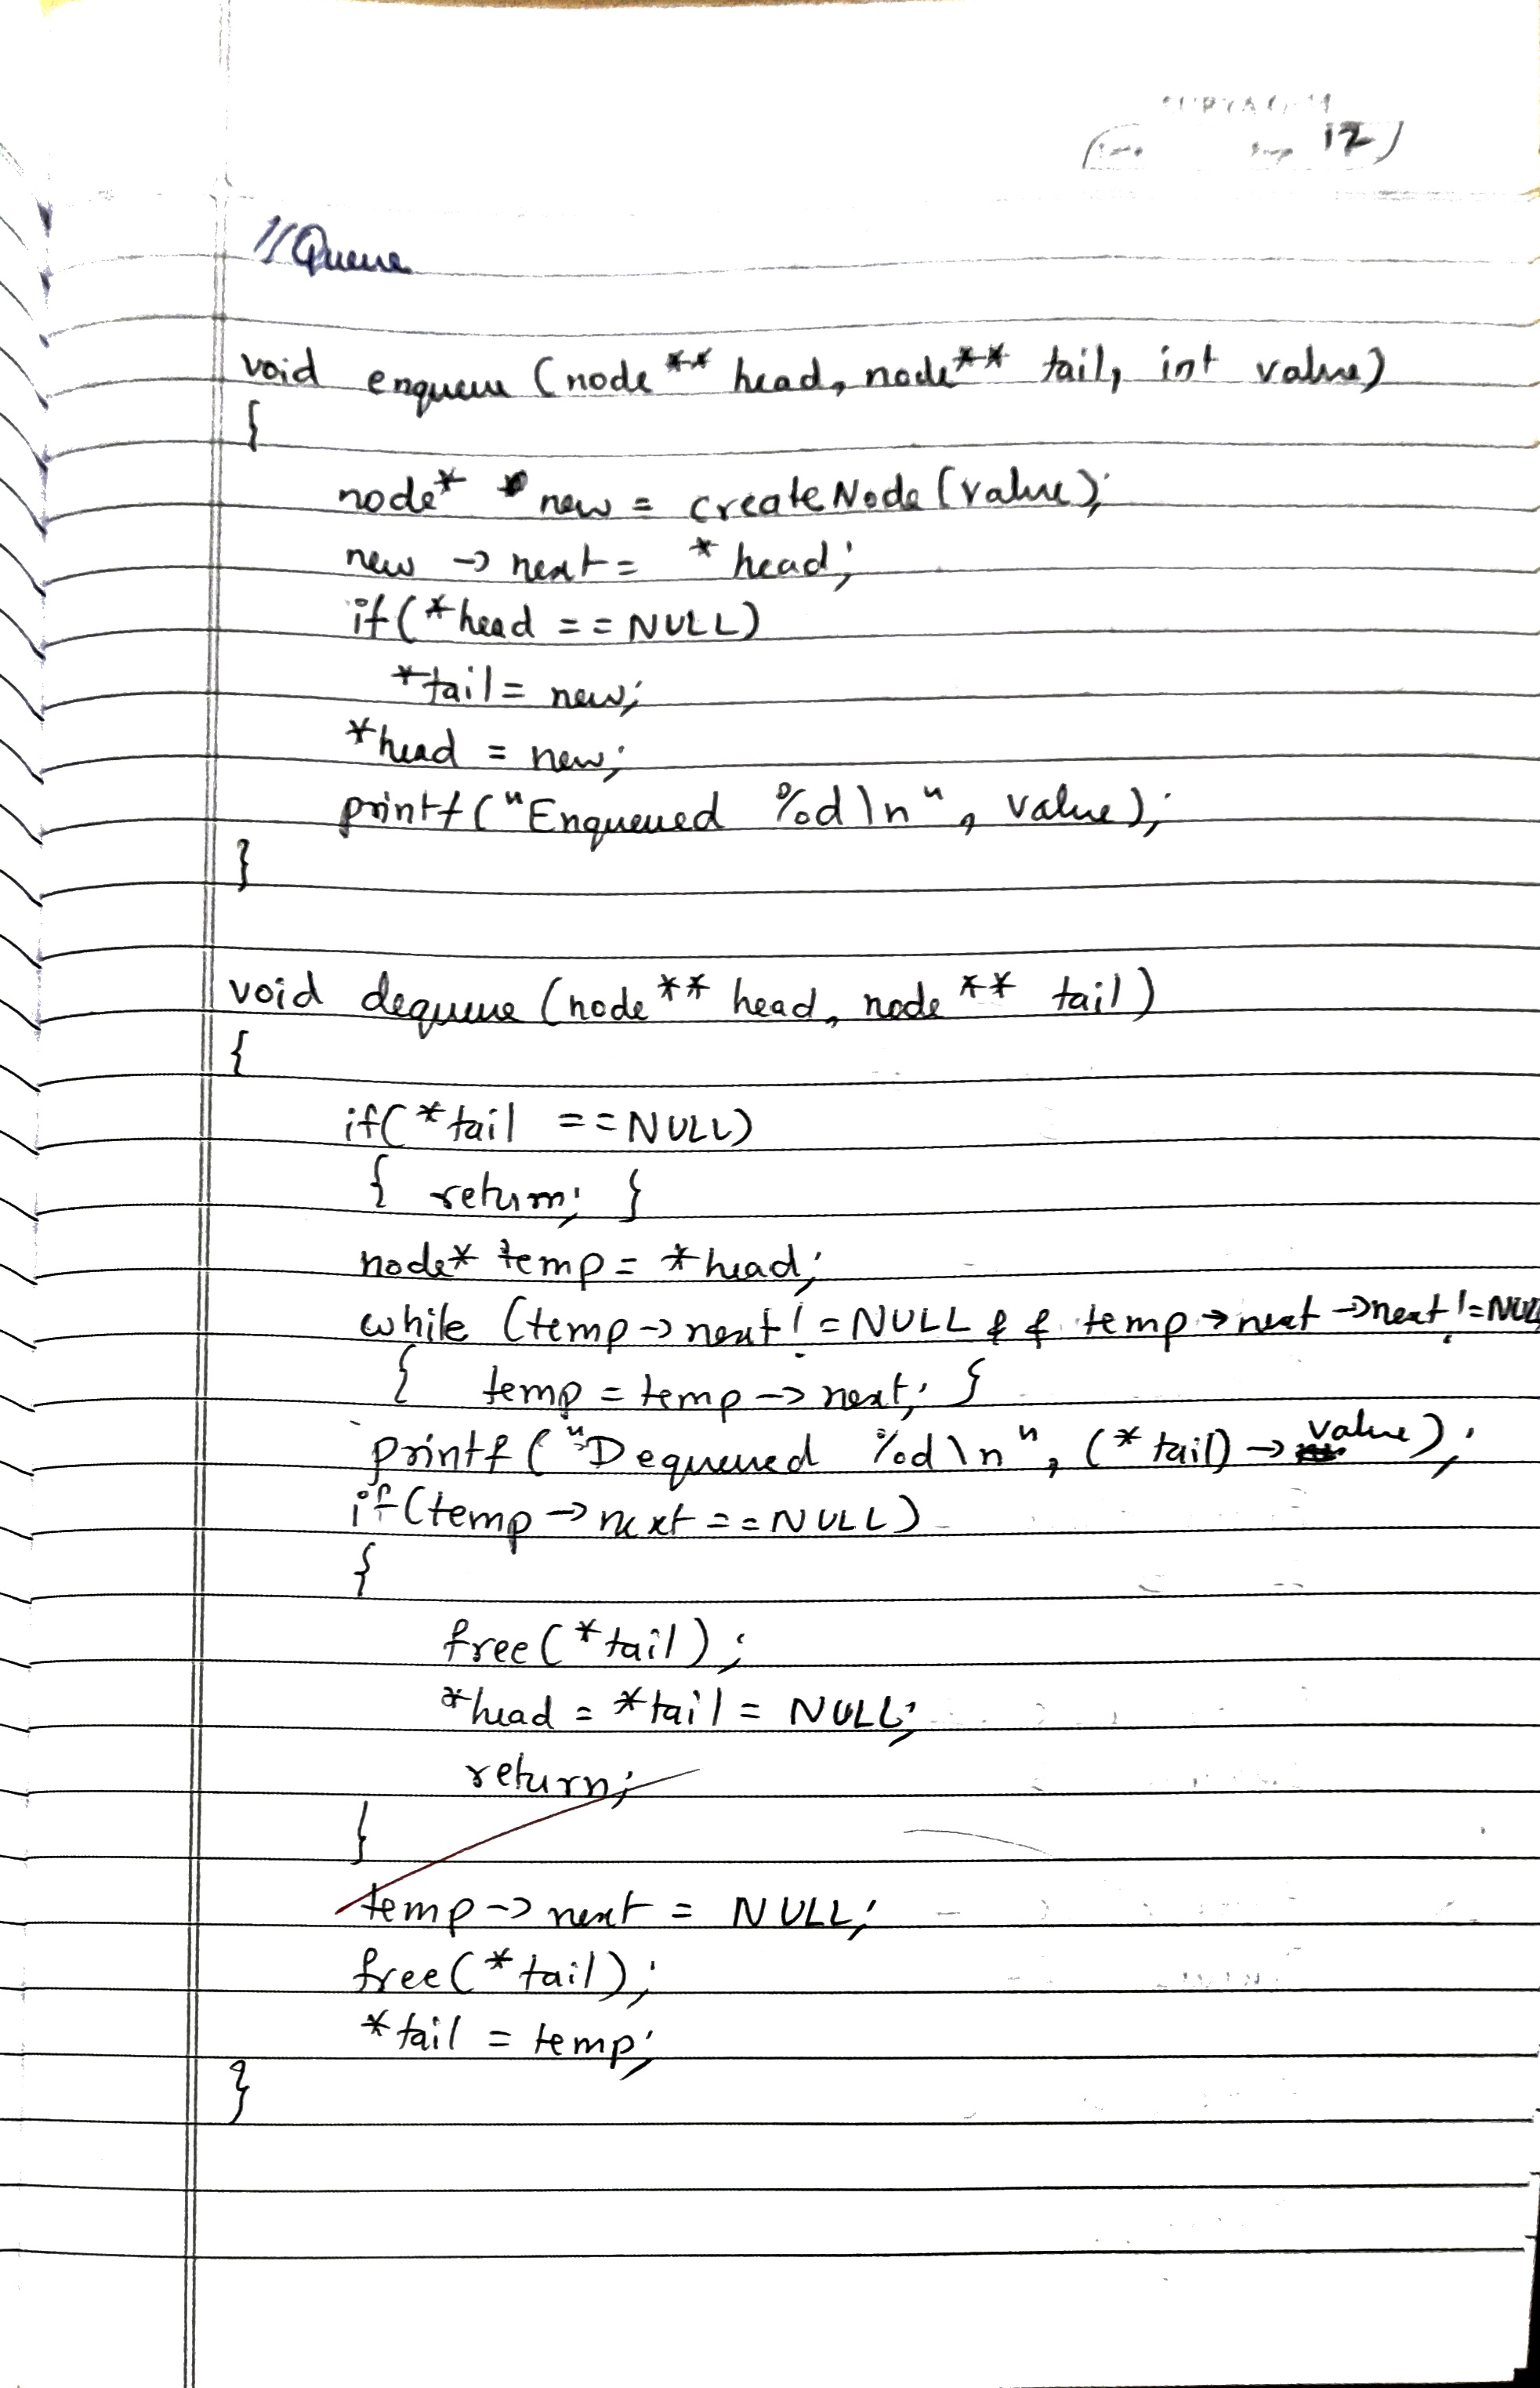 12
//Queue
void enqueue (node ** head, node ** tail, int value)
{
node* new = createNode (value);
new -> next = * head;
if (*head == NULL)
*tail = new;
*head = new;
printf ("Enqueued %d\n", value);
}
void dequeue (node ** head, node ** tail)
{
if( *tail == NULL)
{ return; }
node* temp = *head;
while (temp -> next != NULL && temp -> next -> next != NULL
{ temp = temp -> next; }
printf ("Dequeued %d\n", (*tail) -> value);
if (temp -> next == NULL)
{
free (*tail);
*head = *tail = NULL;
return;
}
temp -> next = NULL;
free (*tail);
*tail = temp;
}